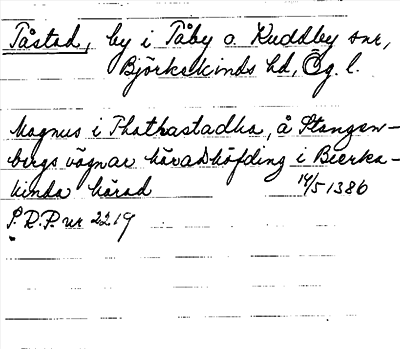 Tåstad, by i Tåby o. Kuddby snr,
Björkekinds hd, Ög. l.
Magnus i Thathastadha, å Stangen-
bergs vägnar häradshöfding i Bierka-
kinda härad 14/5 1386
S.R.P. nr 2219